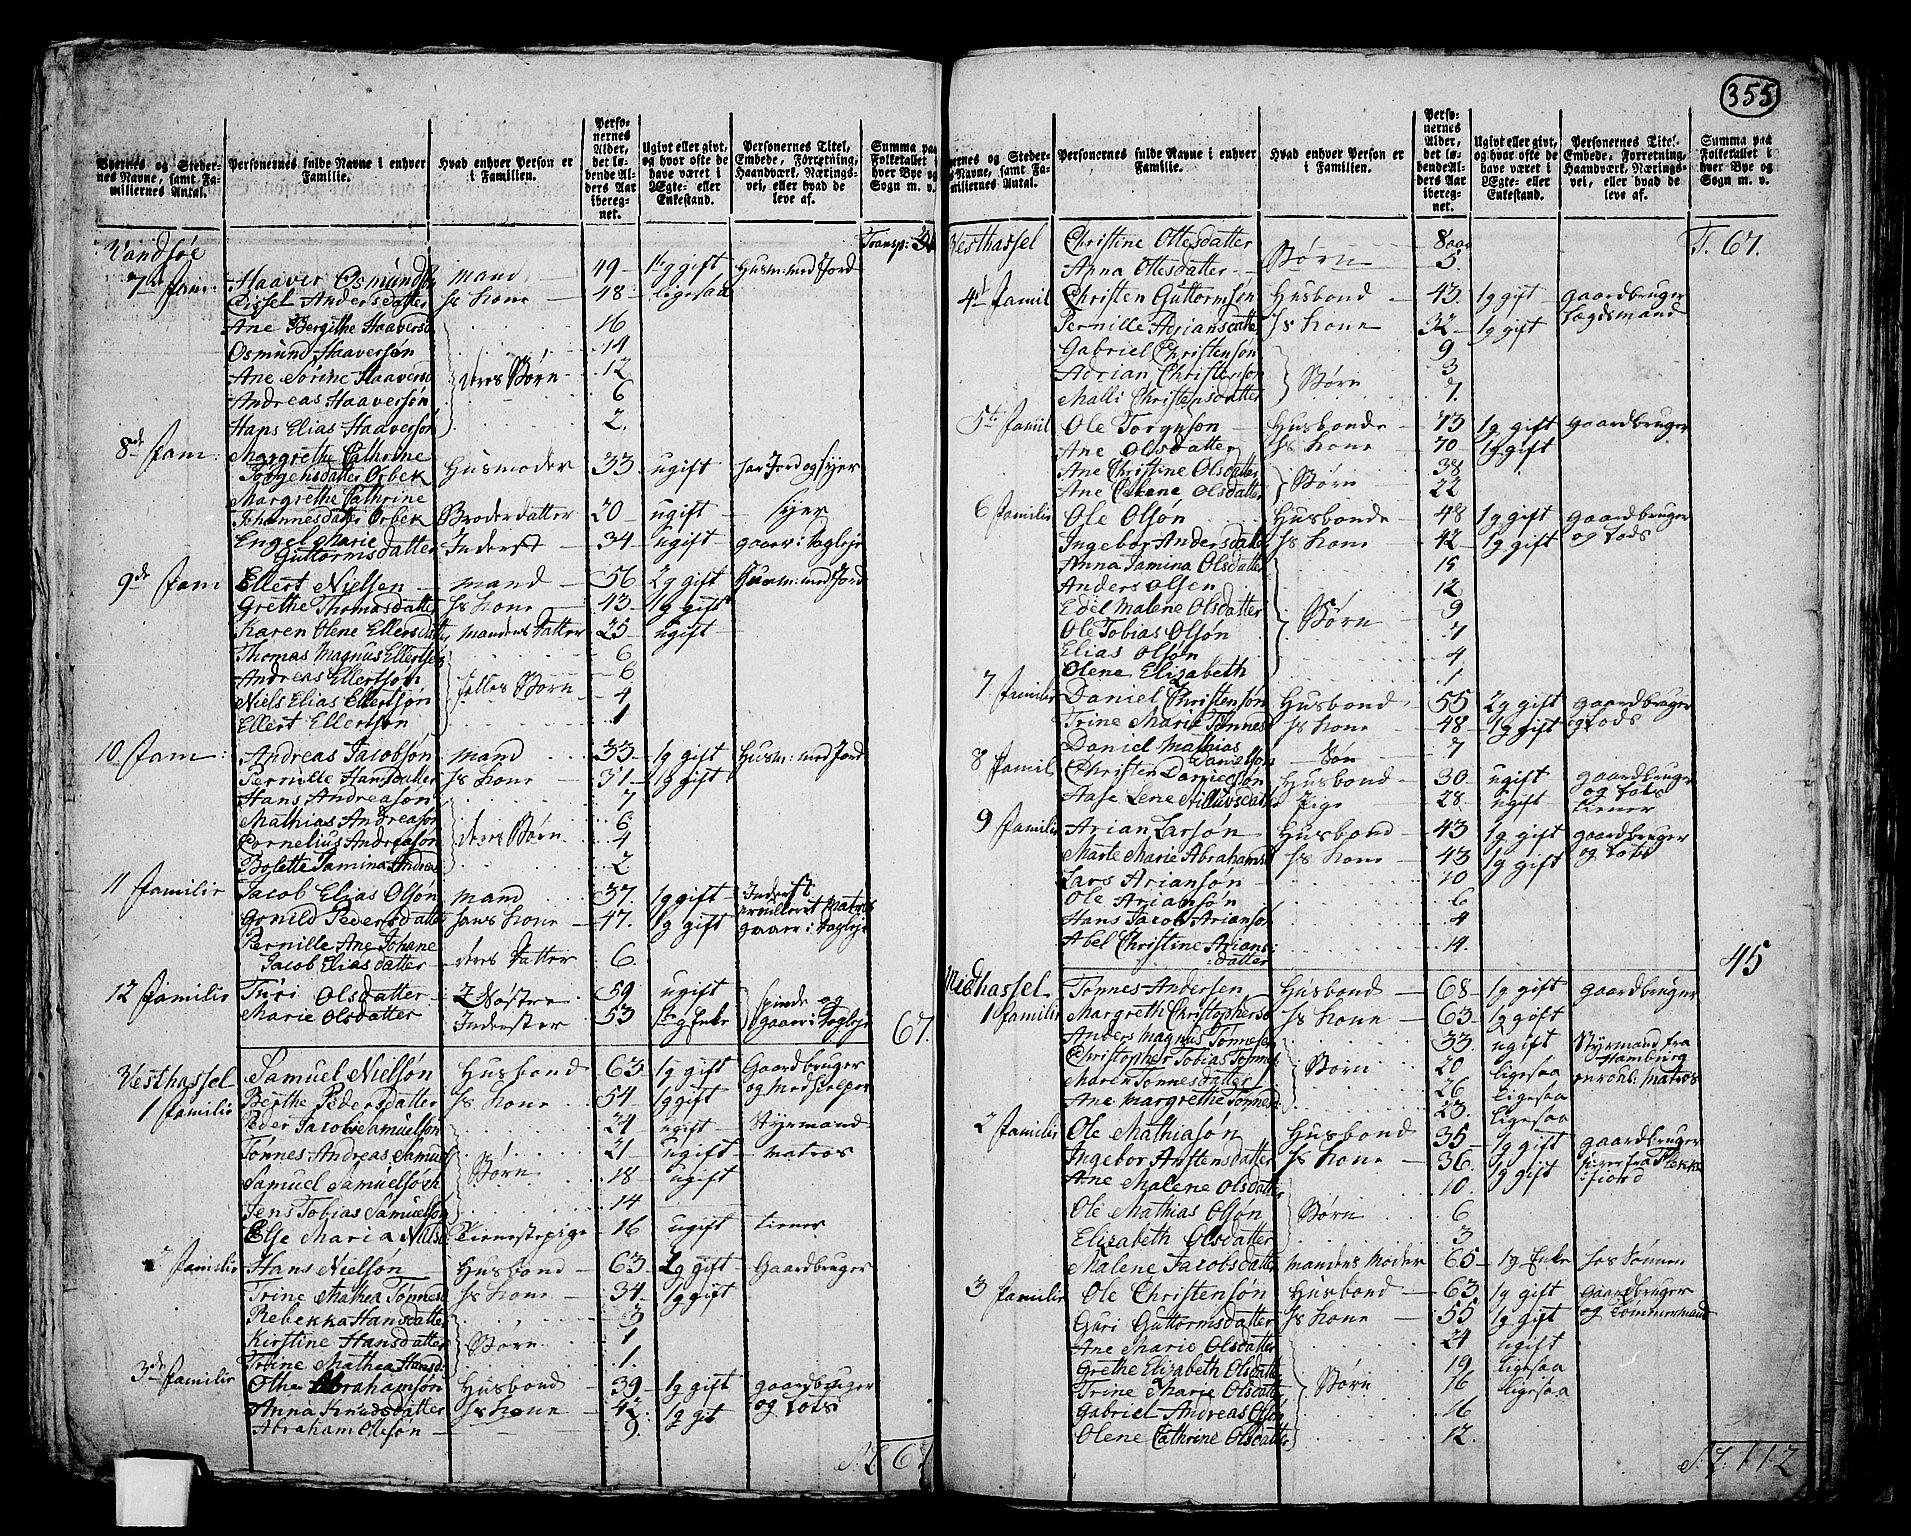 355
Byernes og Stedernes Navne, samt Familiernes Antal.
Personernes fulde Navne i enhver Familie.
Hvad enhver Person er i Familien.
Personernes Alder, det løbende Alders Aar iberegnet.
Ugivt eller givt, og hvor ofte de have været i Ægte- eller Enkestand.
Personernes Titel, Embede, Forretning, Haandværk, Næringsvei, eller hvad de leve af.
Summa paa Folketallet i hver Bye og Sogn m. v.
Vandsøe Transp:
7de Fam: Haaver Osmunds mand 49 1 g gift Husm: med Jord
Sissel Andersdatter hs Kone 48 ligesaa
Ane Bergithe Haaversd 16
Osmund Haaversøn 14
Ane Sørine Haaversd deres Børn 12
Andreas Haaversøn 6
Hans Elias Haaversøn 2.
8de Fam: Margrethe Cathrine
Torgensdatter Orbek Husmoder 33 ugift har Jord og syer
Margrethe Cathrine
Johannesdatter Orbek Broderdatter 20 ugift syer
Engel Marie
Guttormsdatter Inderst 34 ugift gaaer i Dagleje
9de Fam Ellert Nielsen mand 56 2 g gift Husm: med Jord
Grethe Thomasdatter hs Kone 43 1 g gift
Karen Olene Ellersdatter mandens datter 25 ugift
Thomas Magnus Ellertsen 6
Andreas Ellertsøn 6
Niels Elias Ellertsøn fælles Børn 4
Ellert Ellertsøn 1
10 Fam: Andreas Jacobsøn mand 33 1 g gift Husm: med Jord
Pernille Hansdatter hs Kone 31 1 g gift
Hans Andreasøn 7
Mathias Andreasøn 6
Cornelius Andreasøn deres Børn 4
Bolette Tamina Andreas 2
11 Familie Jacob Elias Olsøn mand 37. 1 g gift Inderst
Gonild Pedersdatter hans Kone 47. 1 g gift gaaer i Dagleje
Pernille Ane Johane
Jacob Elias datter deres datter 6.
12 Familie Turi Olsdatter 2 Søstre 59 ugift spinde og
Marie Olsdatter Inderster 53 1 g Enke gaaer i Dagleje 67.
Vesthassel Samuel Nielsøn Husbond 63 1 g gift Gaardbruger
1 Familie Berthe Pedersdatter hs Kone 54 1 g gift og
Peder Jacob Samuelsøn 24 ugift Styrmand
Tønnes Andreas Samuel 21 ugift matros
Samuel Samuelsøn Børn 18 ugift
Jens Tobias Samuelsøn 14
Else Maria Nilsd Tienestepige 16 ugift tiener
2 Familie Hans Nielsøn Husbond 63 2 g gift Gaardbruger
Trine Mathea Tønnesd hs Kone 34 1 g gift
Rebekka Hansdatter 3
Kirstine Hansdatter Børn 1
Trine Mathea Hansd 1.
3de Familie Othe Abrahamsøn Husbond 39 1 g gift gaardbruger
Anna Knudsdatter hs Kone 42 1 g git og Lots
Abraham Ottesøn 9.
S. 67
Vesthassel Christine Ottesdatter Børn 8 aar T. 67.
Anna Ottesdatter 5.
4de Famil Christen Guttormsøn Husbond 43 1 g gift gaardbruger
Pernille Adriansdatter hs Kone 32 1 g gift Lægdsmand
Gabriel Christensøn 9
Adrian Christensøn Børn 3
Malli Christensdatter 7.
5te Famil Ole Torgusøn Husbonde 73 1 g gift gaardbruger
Ane Olsdatter hs Kone 70 1 g gift
Ane Christine Olsdatter Børn 38
Ane Olsdatter 22
6 Familie Ole Olsøn Husbonde 48 1 g gift gaardbruger
Ingebor Andersdatter hs Kone 42 1 g gift og Lods
Anna Tamina Olsdatter 15
Anders Olsen 12
Edel Malene Olsdatter Børn 9
Ole Tobias Olsøn 7
Elias Olsøn 4
Olene Elizabeth 1
7 Familie Daniel Christensøn Husbond 55 2 g gift gaardbruger
Trine Marie Tønnes hs Kone 48 1 g gift og Lods
Daniel Mathias
Danielsøn Søn 7
8 Famil Christen Danielsøn Husbond 30 ugift gaardbruger og Lots
Aase Lene Pige 28 ugift tiener
9 Familie Arian Larsøn Husbond 43 1 g gift gaardbruger
Marte Marie Abrahamsd hs Kone 43 1 g gift og Lots
Lars Ariansøn 10
Ole Ariansøn 6
Hans Jacob Ariansøn 4
Abel Christine Arians:
datter 14. 45
Midhassel Tønnes Andersen Husbond 68 1 g gift gaardbruger
1 Familie Margreth Christophersd hs Kone 63 1 g gift
Anders Magnus Tønnesen 33 ugift Styrmand fra
Christopher Tobias Tønnes Børn 20 ligesaa Hamburg
Maren Tønnesdatter 26 ligesaa enroll: Matros
Ane Margrethe Tønnesd 23. ligesaa
2 Familie Ole Mathiasøn Husbond 35 1 g gift gaardbruger
Ingebor Anstensdatter hs Kone 36. 1 g gift farer fra Flekke
fiord
Ane Malene Olsdatter 10
Ole Mathias Olsøn Børn 6
Elizabeth Olsdatter 3
Malene Jacobsdatter mandens Moder 65 1 g Enke hos Sønnen
3 Familie Ole Christensøn Husbond 63 1 g gift gaardbruger
Guri Guttormsdatter hs Kone 55 1 g gift og Tømmermand
Ane Marie Olsdatter 24 ugift
Grethe Elizabeth Olsdatter 19 ligesaa
Trine Marie Olsdatter Børn 16 ligesaa
Gabriel Andreas Olsøn 16
Olene Cathrine Olsdatter 12
112